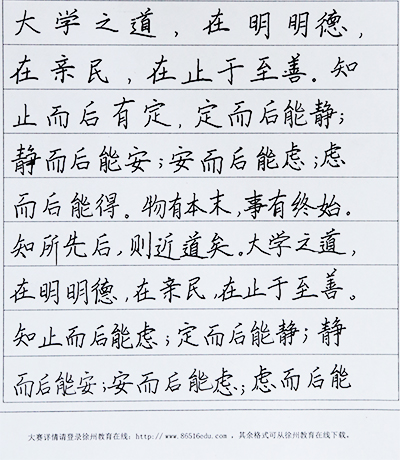 大学之道，在明明德，
在亲民，在止于至善。知
止而后有定，定而后能静；
静而后能安；安而后能虑；虑
而后能得。物有本末，事有终始。
知所先后，则近道矣。大学之道，
在明明德，在亲民，在止于至善。
知止而后能虑；定而后能静；静
而后能安；安而后能虑；虑而后能
大赛详情请登录徐州教育在线：http://www.86516edu.com ，其余格式可从徐州教育在线下载。